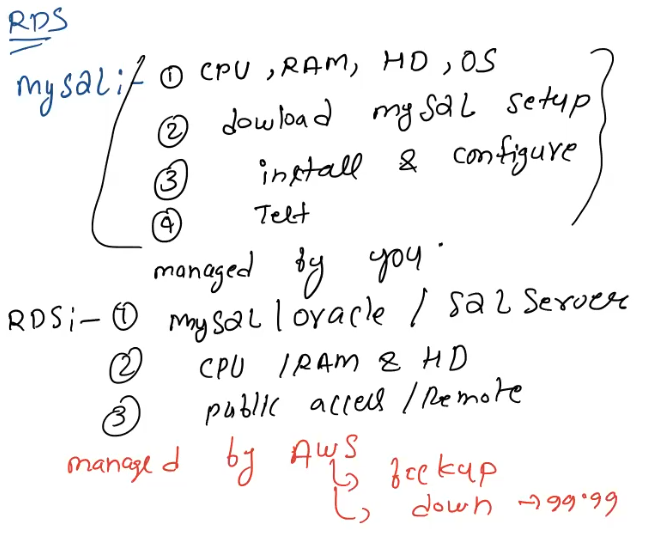 RDS
mysql :- ① CPU, RAM, HD, OS
② dowload mysql setup
③ install & configure
④ Test
managed by you.
RDS :- ① mysql / oracle / SQL Server
② CPU / RAM & HD
③ public access / Remote
managed by AWS
↳ backup
↳ down → 99.99